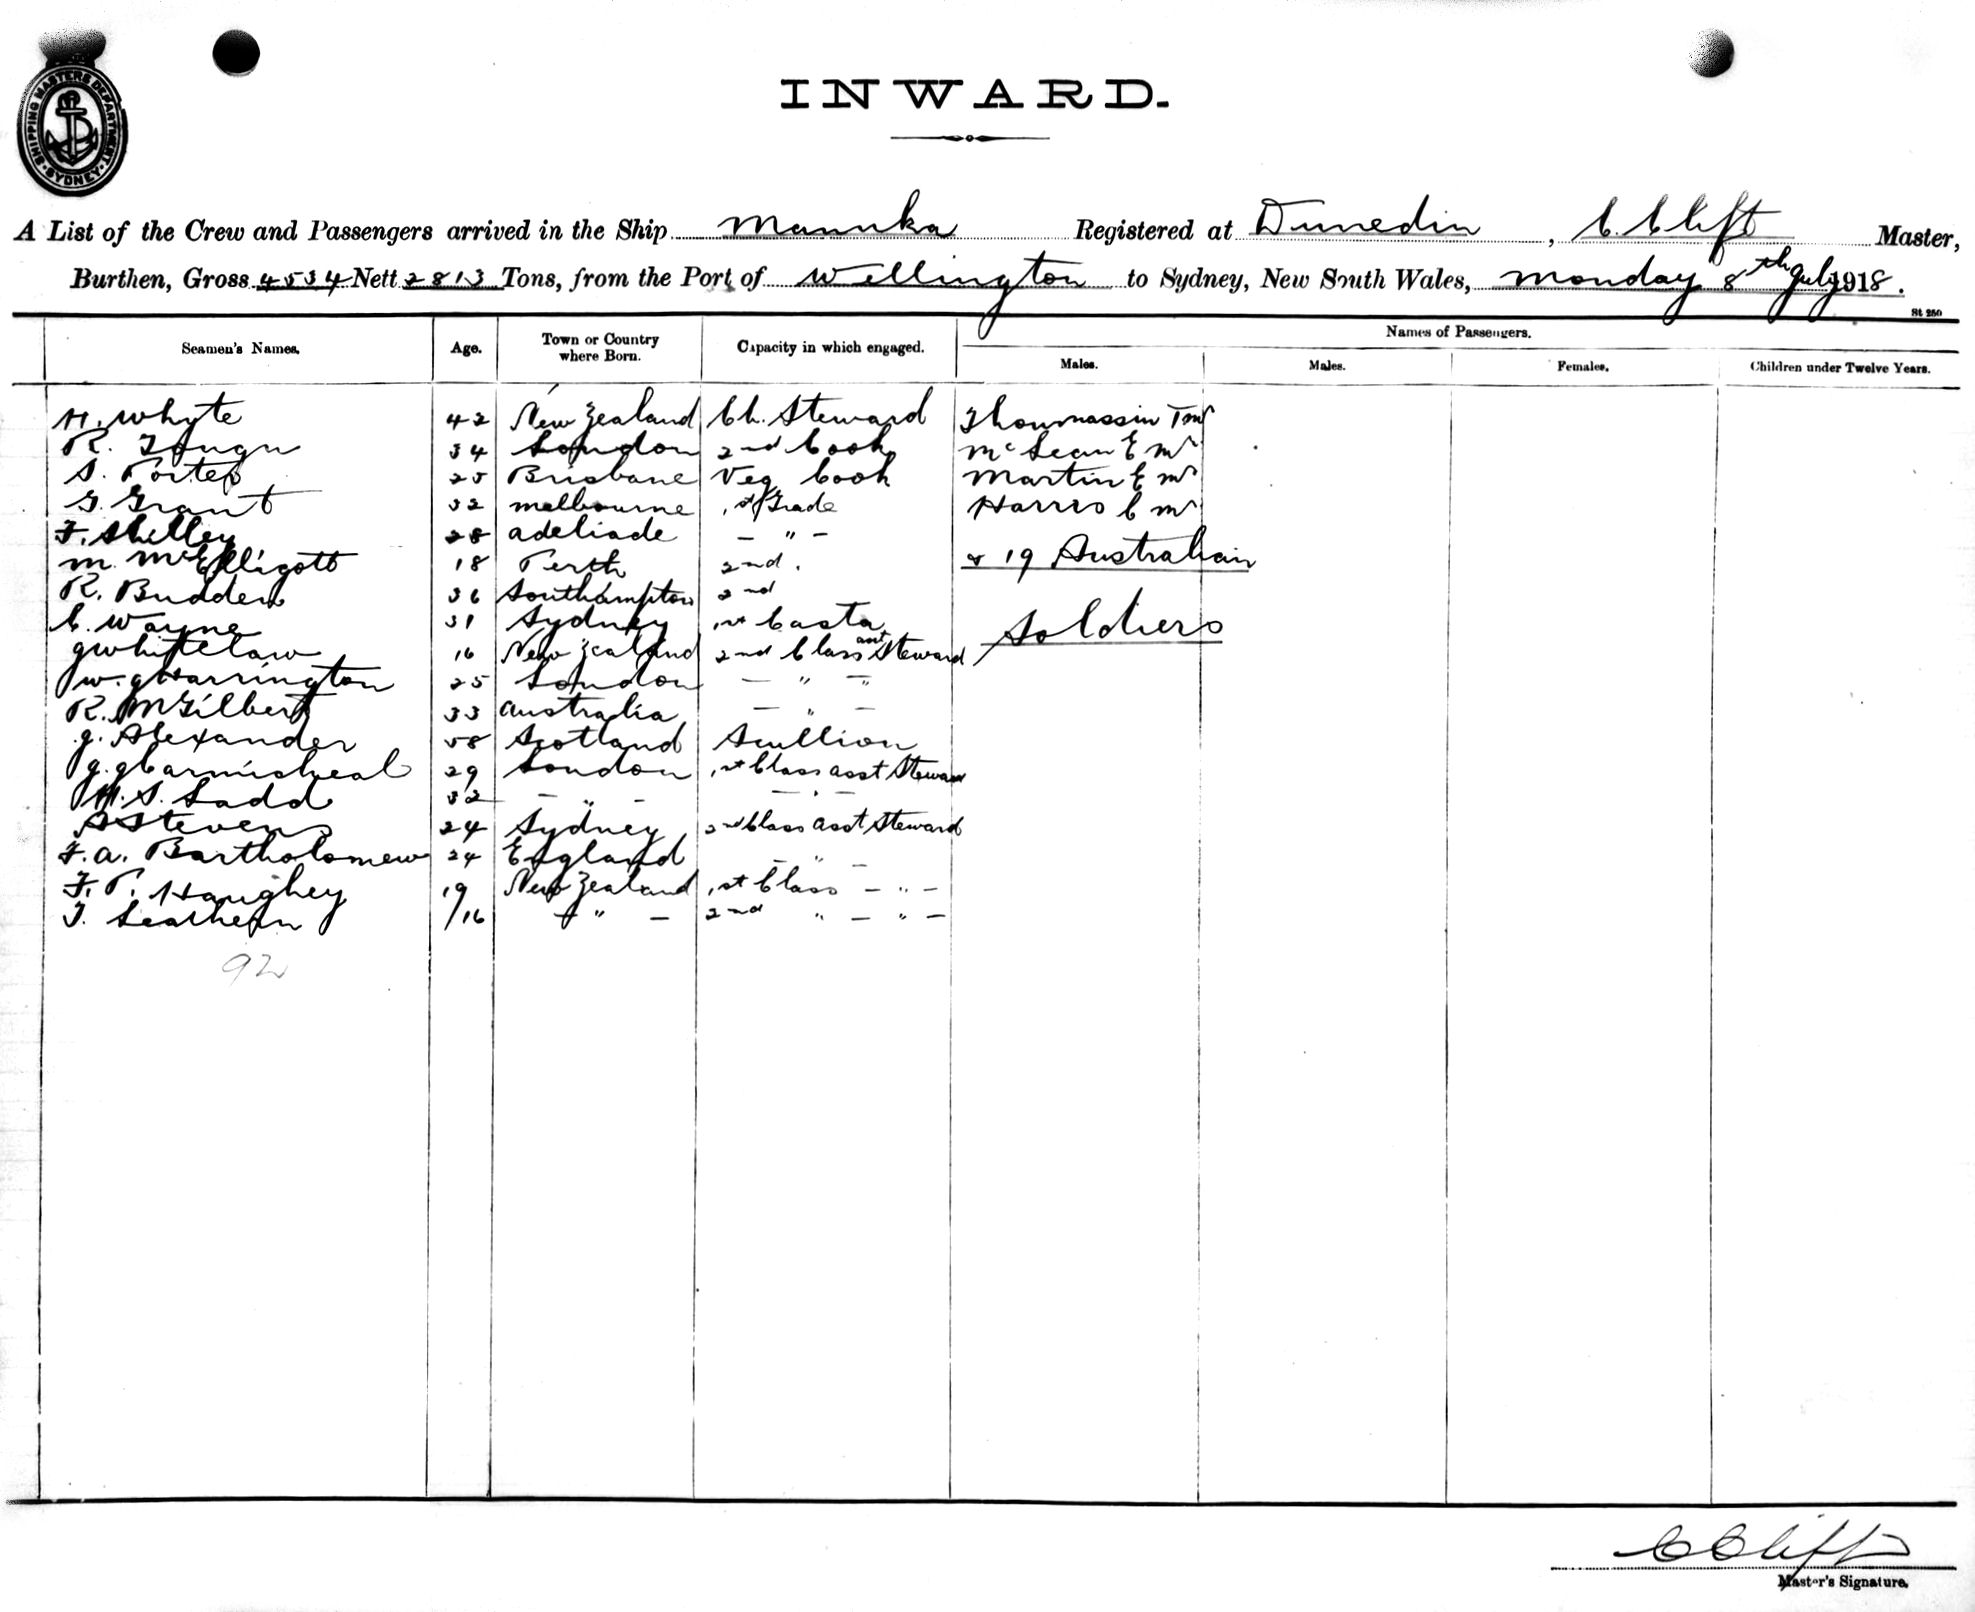 SHIPPING MASTERS DEPARTMENT. SYDNEY
INWARD.
A List of the Crew and Passengers arrived in the Ship Manuka Registered at Dunedin, C. Clift Master,
Burthen, Gross 4534 Nett 2813 Tons, from the Port of Wellington to Sydney, New South Wales, Monday 8th July 1918.
St 250
Seamen's Names. Age. Town or Country where Born. Capacity in which engaged. Names of Passengers.
Males. Males. Females. Children under Twelve Years.
H. Whyte 42 New Zealand Ch. Steward Thoumassin T Mr
R. 34 London 2nd Cook McLean E Mr
S. Porter 25 Brisbane Veg Cook Martin E Mr
G. Grant 32 Melbourne 1st Grade Harris C Mr
F. Shelley 28 Adeliade - " -
M. McElligott 18 Perth 2nd. & 19 Australian
R. Budden 36 Southampton 2nd
C. Wayne 31 Sydney 1st Soldiers
G Whitelaw 16 New Zealand 2nd Class asst Steward
W. G Harrington 25 London - " -
R. M Gilbert 33 Australia - " -
G. Alexander 58 Scotland Scullion
G. G Carmicheal 29 London 1st Class asst Steward
H. S. Ladd 32 - " - - " -
A Stevens 24 Sydney 2nd Class asst Steward
F. A. Bartholomew 24 England - " -
F. P. Haughey 19 New Zealand 1st Class - " -
T. 16 - " - 2nd " - " -
92
C Clift
Master's Signature.